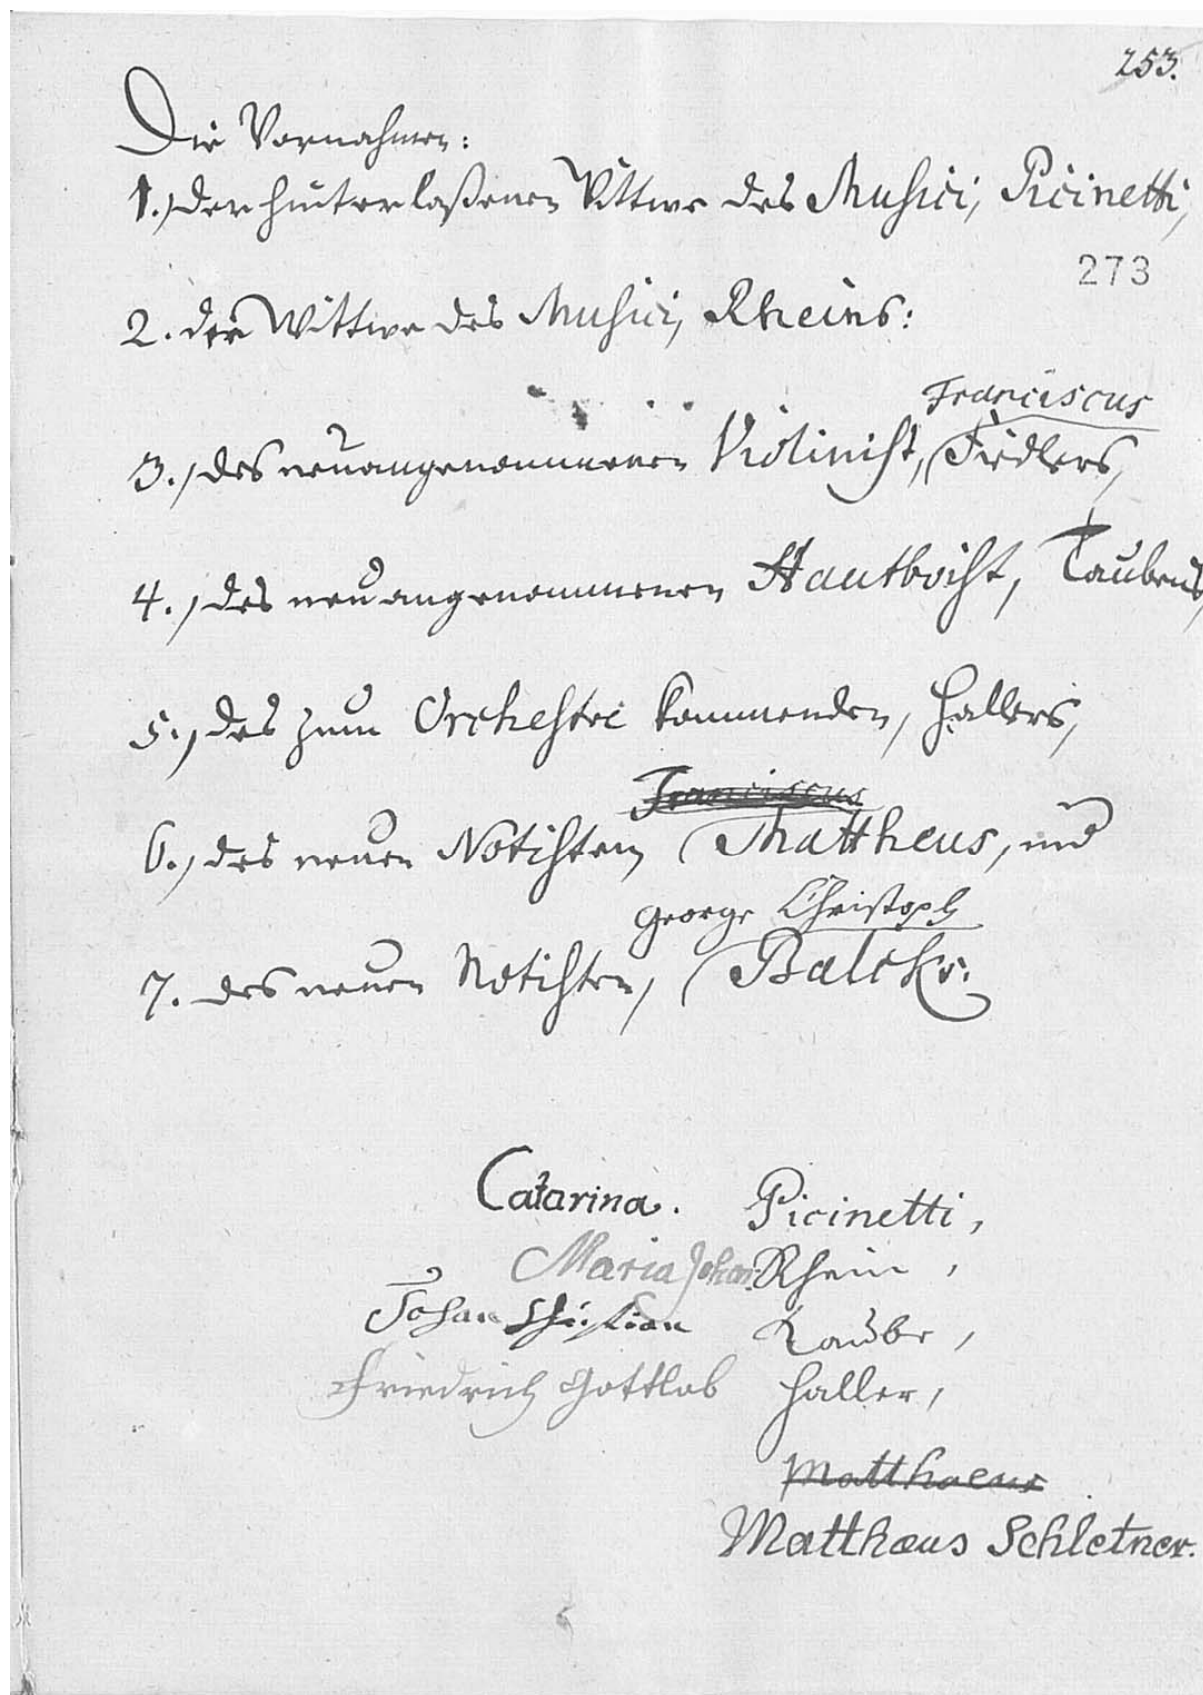 253.
Die Vornahmen:
1.) der hinterlaßenen Wittwe des Musici, Picinetti,
273
2. der Wittwe des Musici, Rheins:
Franciscus
3.) des neuangenommenen Violinist, Fiedlers,
4.) des neuangenommenen Hautboist, Taubens,
5.) des zum Orchestre kommenden, Hallers,
Franciscus
6.) des neuen Notisten, Mattheus, und
George Christoph
7. des neuen Notisten, Balcks.
Catarina. Picinetti,
Maria Johan: Rhein,
Johan Christian Taube,
Friedrich Gottlob Haller,
Matthaeus
Matthæus Schletner.